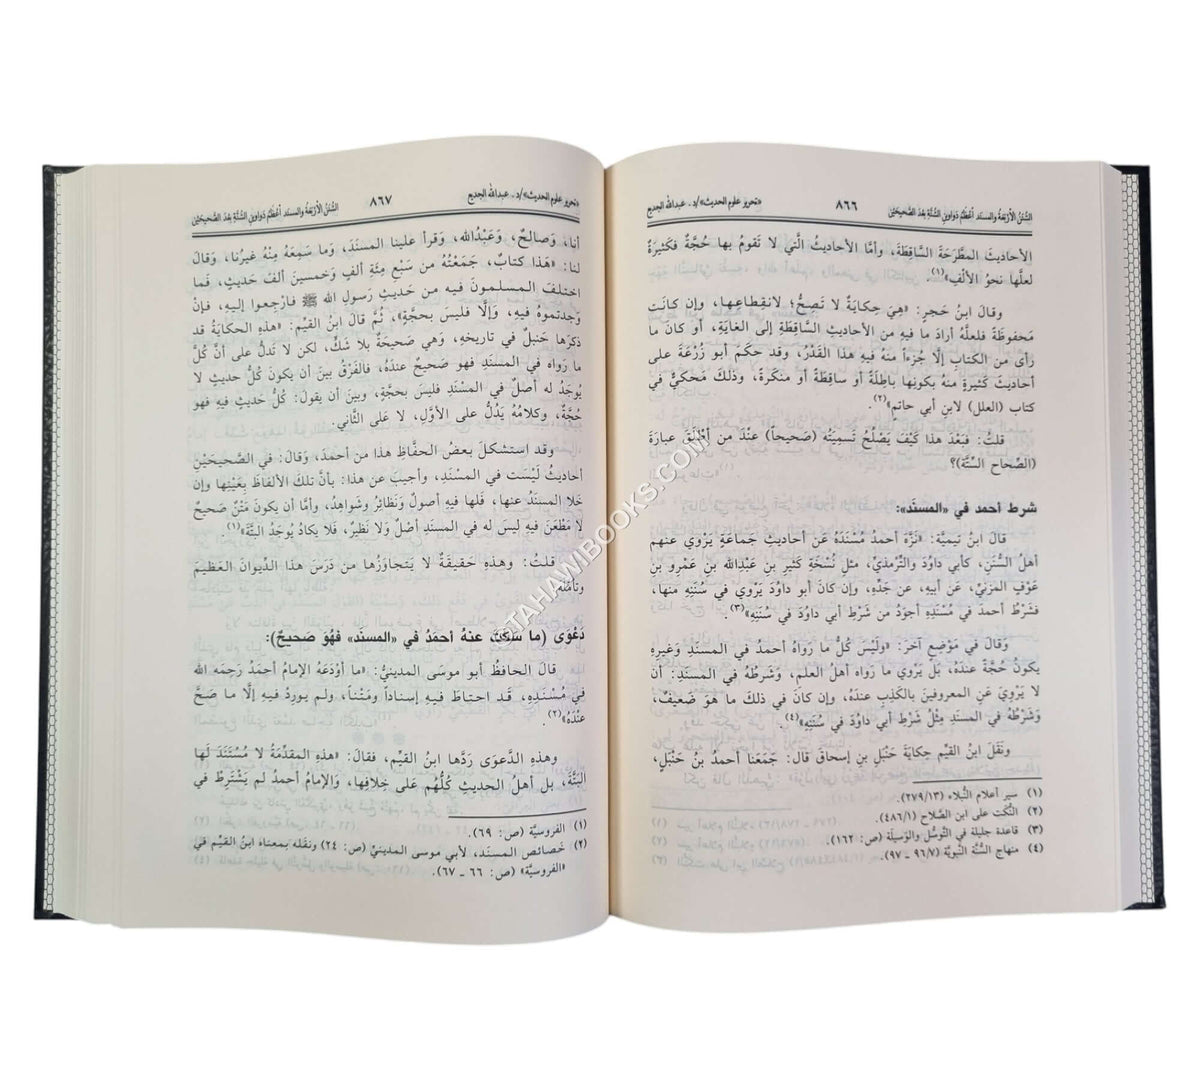 السُّنَنُ الأرْبَعَةُ والمسند أعْظَمُ دَوَاوينِ السُّنَّةِ بَعْدَ الصَّحِيحَيْنِ
٨٦٦
«تحرير علوم الحديث»/د. عبدالله الجديع
الأحاديثَ المطَّرَحَةَ السَّاقِطَةَ، وأمَّا الأحاديثُ الَّتي لا تَقومُ بها حُجَّةٌ فكَثيرَةٌ
لعلَّها نَحوُ الألْفِ»(١).
وقالَ ابنُ حَجرٍ: «هِيَ حِكايَةٌ لا تَصِحُّ؛ لانقِطاعِها، وإن كانَت
مَحفوظَةً فلعلَّهُ أرادَ مَا فيهِ من الأحاديثِ السَّاقِطَةِ إلى الغايَةِ، أو كانَ ما
رأى من الكتابِ إلَّا جُزءاً منهُ فيهِ هذا القَدْرُ، وقد حكَمَ أبو زُرْعَةَ على
أحاديثَ كَثيرَةٍ منهُ بكونِها باطِلَةً أو ساقِطَةً أو منكَرةً، وذلكَ مَحكيٌّ في
كتاب (العللِ) لابنِ أبي حاتمٍ»(٢).
قلتُ: فبَعْدَ هذا كَيْفَ يَصْلُحُ تَسمِيَتُه (صَحيحاً) عنْدَ من أطْلَقَ عبارَةَ
(الصِّحاح السِّتَّة)؟
شرط أحمد في «المسنَد»:
قالَ ابنُ تيميَّةَ: «نَزَّهَ أحمدُ مُسْنَدَهُ عَن أحاديثِ جَماعَةٍ يَرْوي عنهم
أهلُ السُّنَنِ، كأبي داوُدَ والتِّرمذيِّ، مثلِ نُسْخَةِ كَثيرِ بنِ عَبدِاللهِ بنِ عمرِو بنِ
عَوْفٍ المزَنيِّ، عَن أبيهِ، عن جَدِّهِ، وإن كانَ أبو داوُدَ يَرْوي في سُنَنِه منها،
فشَرْطُ أحمدَ في مُسْنَدِهِ أجوَدُ من شَرْطِ أبي داوُدَ في سُنَنِهِ»(٣).
وقالَ في مَوْضِعٍ آخرَ: «وَلَيْسَ كُلُّ ما رَواهُ أحمدُ في المسنَدِ وغَيرِهِ
يكونُ حُجَّةً عندَهُ، بلْ يَروي ما رَواه أهلُ العلمِ، وَشَرطُهُ في المسنَدِ: أن
لا يَرْوِيَ عَنِ المعروفينَ بالكَذِبِ عندَهُ، وإن كانَ في ذلكَ ما هوَ ضَعيفٌ،
وَشَرْطُهُ في المسندِ مِثْلُ شَرْطِ أبي داوُدَ في سُنَنِهِ»(٤).
ونَقَلَ ابنُ القيِّمِ حِكايَةَ حَنْبَلِ بنِ إسحاقَ قال: جَمَعَنا أحمدُ بنُ حَنْبَلٍ،
(١) سير أعلام النُّبلاء (٢٧٩/١٣).
(٢) النُّكت على ابن الصَّلاح (٤٨٦/١).
(٣) قاعدة جليلة في التَّوسُّل والوَسيلَة (ص: ١٦٢).
(٤) منهاج السُّنَّة النَّبويَّة (٩٦/٧ ـ ٩٧).
السُّنَنُ الأرْبَعَةُ والمسند أعْظَمُ دَوَاوينِ السُّنَّةِ بَعْدَ الصَّحِيحَيْنِ
٨٦٧
«تحرير علوم الحديث»/د. عبدالله الجديع
أنا، وَصالحٌ، وَعَبْدُالله، وَقرأ علينا المسنَدَ، وَما سَمِعَهُ مِنْهُ غَيرُنا، وَقالَ
لنا: «هَذا كتابٌ، جَمَعْتُهُ من سَبْعِ مِئَةِ ألفٍ وَخمسينَ ألفَ حَديثٍ، فَما
اختلفَ المسلمونَ فيه من حَديثِ رَسولِ الله ﷺ فارْجِعوا إليهِ، فإنْ
وَجدتموهُ فيهِ، وَإلَّا فليسَ بحجَّةٍ»، ثُمَّ قالَ ابنُ القيِّمِ: «هذهِ الحكايَةُ قد
ذكرَها حَنبلٌ في تاريخهِ، وَهي صَحيحَةٌ بلا شَكٍّ، لكن لا تَدلُّ على أنَّ كُلَّ
ما رَواه في المسنَدِ فهو صَحيحٌ عندَهُ، فالفَرْقُ بينَ أن يكونَ كُلُّ حديثٍ لا
يُوجَدُ له أصلٌ في المسْنَدِ فليسَ بحجَّةٍ، وبينَ أن يقولَ: كُلُّ حَديثٍ فيهِ فهو
حُجَّةٌ، وكلامُهُ يَدُلُّ على الأوَّلِ، لا عَلى الثَّاني.
وقد استشكلَ بعضُ الحفَّاظِ هذا من أحمدَ، وَقالَ: في الصَّحيحَيْنِ
أحاديثُ لَيْسَت في المسْنَدِ، وأجيبَ عن هذا: بأنَّ تلكَ الألفاظَ بعَيْنِها وإن
خَلا المسنَدُ عنها، فلَها فيهِ أصولٌ وَنَظائرُ وشَواهِدُ، وأمَّا أن يكونَ مَتْنٌ صَحيحٌ
لا مَطْعَنَ فيهِ ليسَ له في المسندِ أصْلٌ وَلا نَظيرٌ، فلَا يكادُ يُوجَدُ البتَّةَ»(١).
قلتُ: وَهذهِ حَقيقَةٌ لا يَتجاوَزُها من دَرَسَ هذا الدِّيوانَ العَظيمَ
وتأمَّلَه.
دَعْوَى (ما سَكَتَ عنهُ أحمَدُ في «المسنَد» فهُوَ صَحيحٌ):
قالَ الحافظُ أبو موسَى المدينيُّ: «ما أوْدَعَهُ الإمامُ أحمَدُ رَحِمَه الله
في مُسْنَدِهِ، قَد احتاطَ فيهِ إسناداً ومَتْناً، ولم يوردْ فيهِ إلَّا ما صَحَّ
عنْدَهُ»(٢).
وهذهِ الدَّعوَى رَدَّها ابنُ القيِّمِ، فقالَ: «هذهِ المقدِّمَةُ لا مُسْتَنَدَ لَها
البَتَّةَ، بل أهلُ الحديثِ كلُّهُم عَلى خِلافِها، والإمامُ أحمدُ لم يَشْتَرِطْ في
(١) الفروسيَّة (ص: ٦٩).
(٢) خصائص المسنَد، لأبي موسى المدينيِّ (ص: ٢٤) ونقَله بمعناه ابنُ القيِّم في
«الفروسيَّة» (ص: ٦٦ ـ ٦٧).
TAHAWIBOOKS.COM